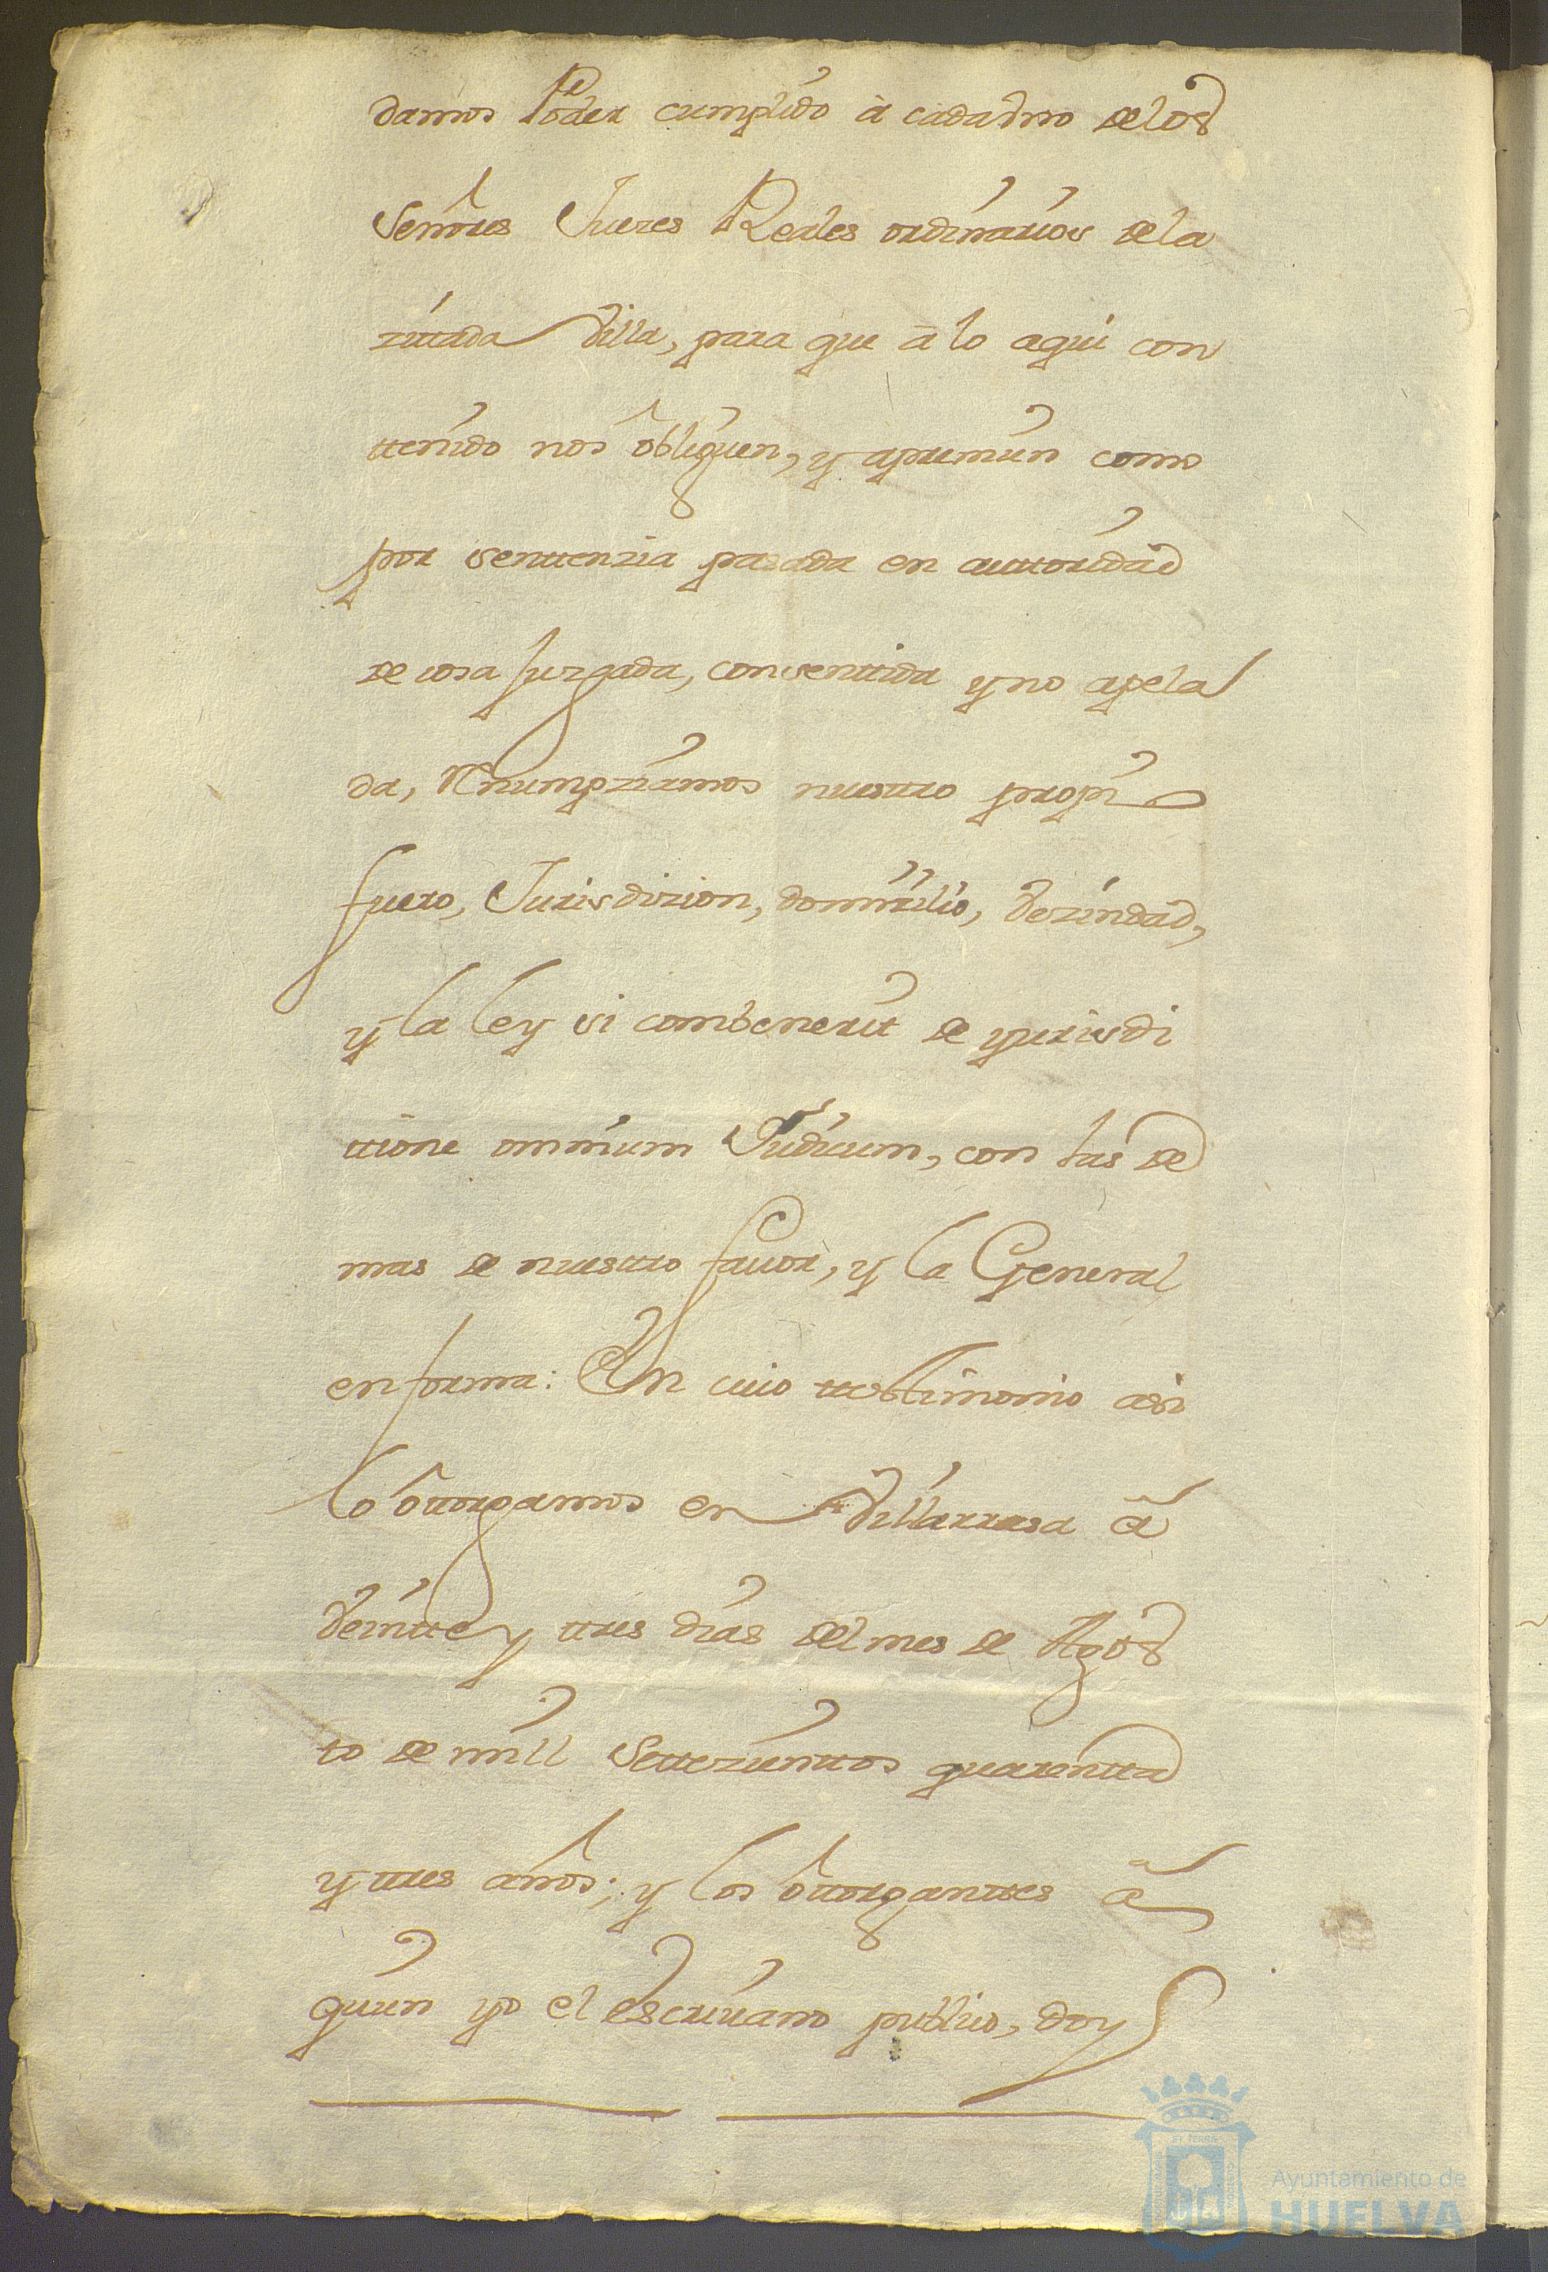 damos Poder cumplido à cada vno de los
Señores Jueces Reales ordinarios de la
zitada Villa, para que a lo aqui con
ttenido nos obliguen, y apremien como
por senttenzia pasada en auttoridad
de cosa Juzgada, consenttida y no apela
da, Renumpziamos nuesttro propio
fuero, Jurisdizion, domizilio, Vezindad,
y la ley si combenerit de yurisdi
ttione omnium Judicum, con las de
mas de nuesttro favor, y la General
en forma: En cuio ttestimonio asi
lo ottorgamos en Villarrasa à
Veintte y ttres dias del mes de Agos
to de mill Settezienttos quarentta
y ttres años; y los ottorganttes à
quien yo el escrivano publico, doy
Ayuntamiento de
HUELVA